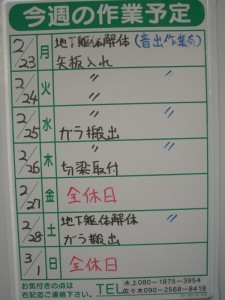 今週の作業予定
2/23 月 地下躯体解体 (音出作業有)
矢板入れ
2/24 火 〃 〃
2/25 水 〃 〃
ガラ搬出
2/26 木 〃 〃
切梁取付
2/27 金 全休日
2/28 土 地下躯体解体 〃
ガラ搬出
3/1 日 全休日
お気付きの点は
右記迄ご連絡下さい。 TEL
水上080-1875-3954
佐々木090-2568-8418